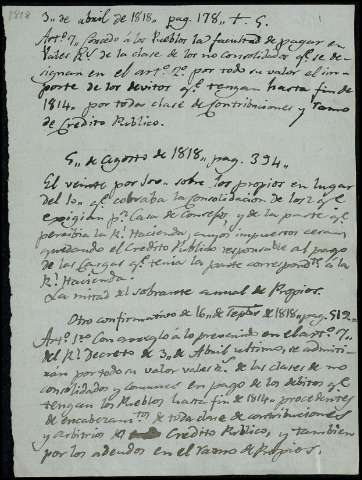 1818
3,, de abril de 1818,, pag. 178,, t. 5.
Artº. 7,, Concedo á los Pueblos la facultad de pagar en
Vales Rs. de la clase de los no consolidados qe. se de-
signan en el artº. 2º. por todo su valor el im-
porte de los devitos qe. tengan hasta fin de
1814,, por toda clase de Contribuciones y ramo
de Credito Publico.
5,, de agosto de 1818,, pag. 394,,
El veinte por 100,, sobre los propios en lugar
del 10,, qe. cobraba la Consolidacion de los 2 qe.
exigian pr. Casa de Consejos, y de la parte qe.
percibia la Rl. Hacienda, cuyos impuestos cesan
quedando el Credito Publico responsable al pago
de las Cargas qe. tenia la parte correspondte. á la
Rl. Hacienda.
La mitad del sobrante anual de Propios.
Otro confirmativo de 16,, de Sepbre. de 1818,, pag. 512,,
Artº. 1º. Con arreglo á lo prevenido en el artº. 7,,
del Rl. Decreto de 3,, de Abril ultimo, se admiti-
rán por todo su valor vales Rs. de las clases de no
consolidados y comunes en pago de los debitos qe.
tengan los Pueblos hasta fin de 1814,, procedentes
de encabezamtos. de toda clase de contribuciones
y arbitrios de Credito Publico, y tambien
por los adeudos en el ramo de Propios.